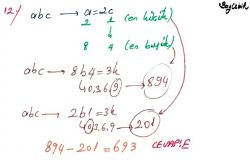 12.) abc → a=2c
2 1 (en küçük)
4
8 4 (en büyük)
abc → 8b4=3k
↳ 0,3,6,9 → 894
abc → 2b1=3k
↳ 0,3,6,9 → 201
894-201=693 CEVAP:E